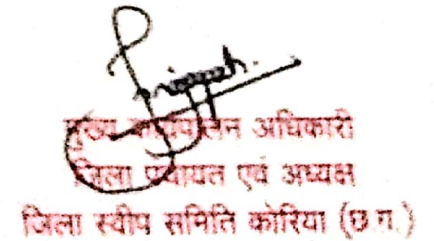 मुख्य कार्यपालन अधिकारी
जिला पंचायत एवं अध्यक्ष
जिला स्वीप समिति कोरिया (छ.ग.)